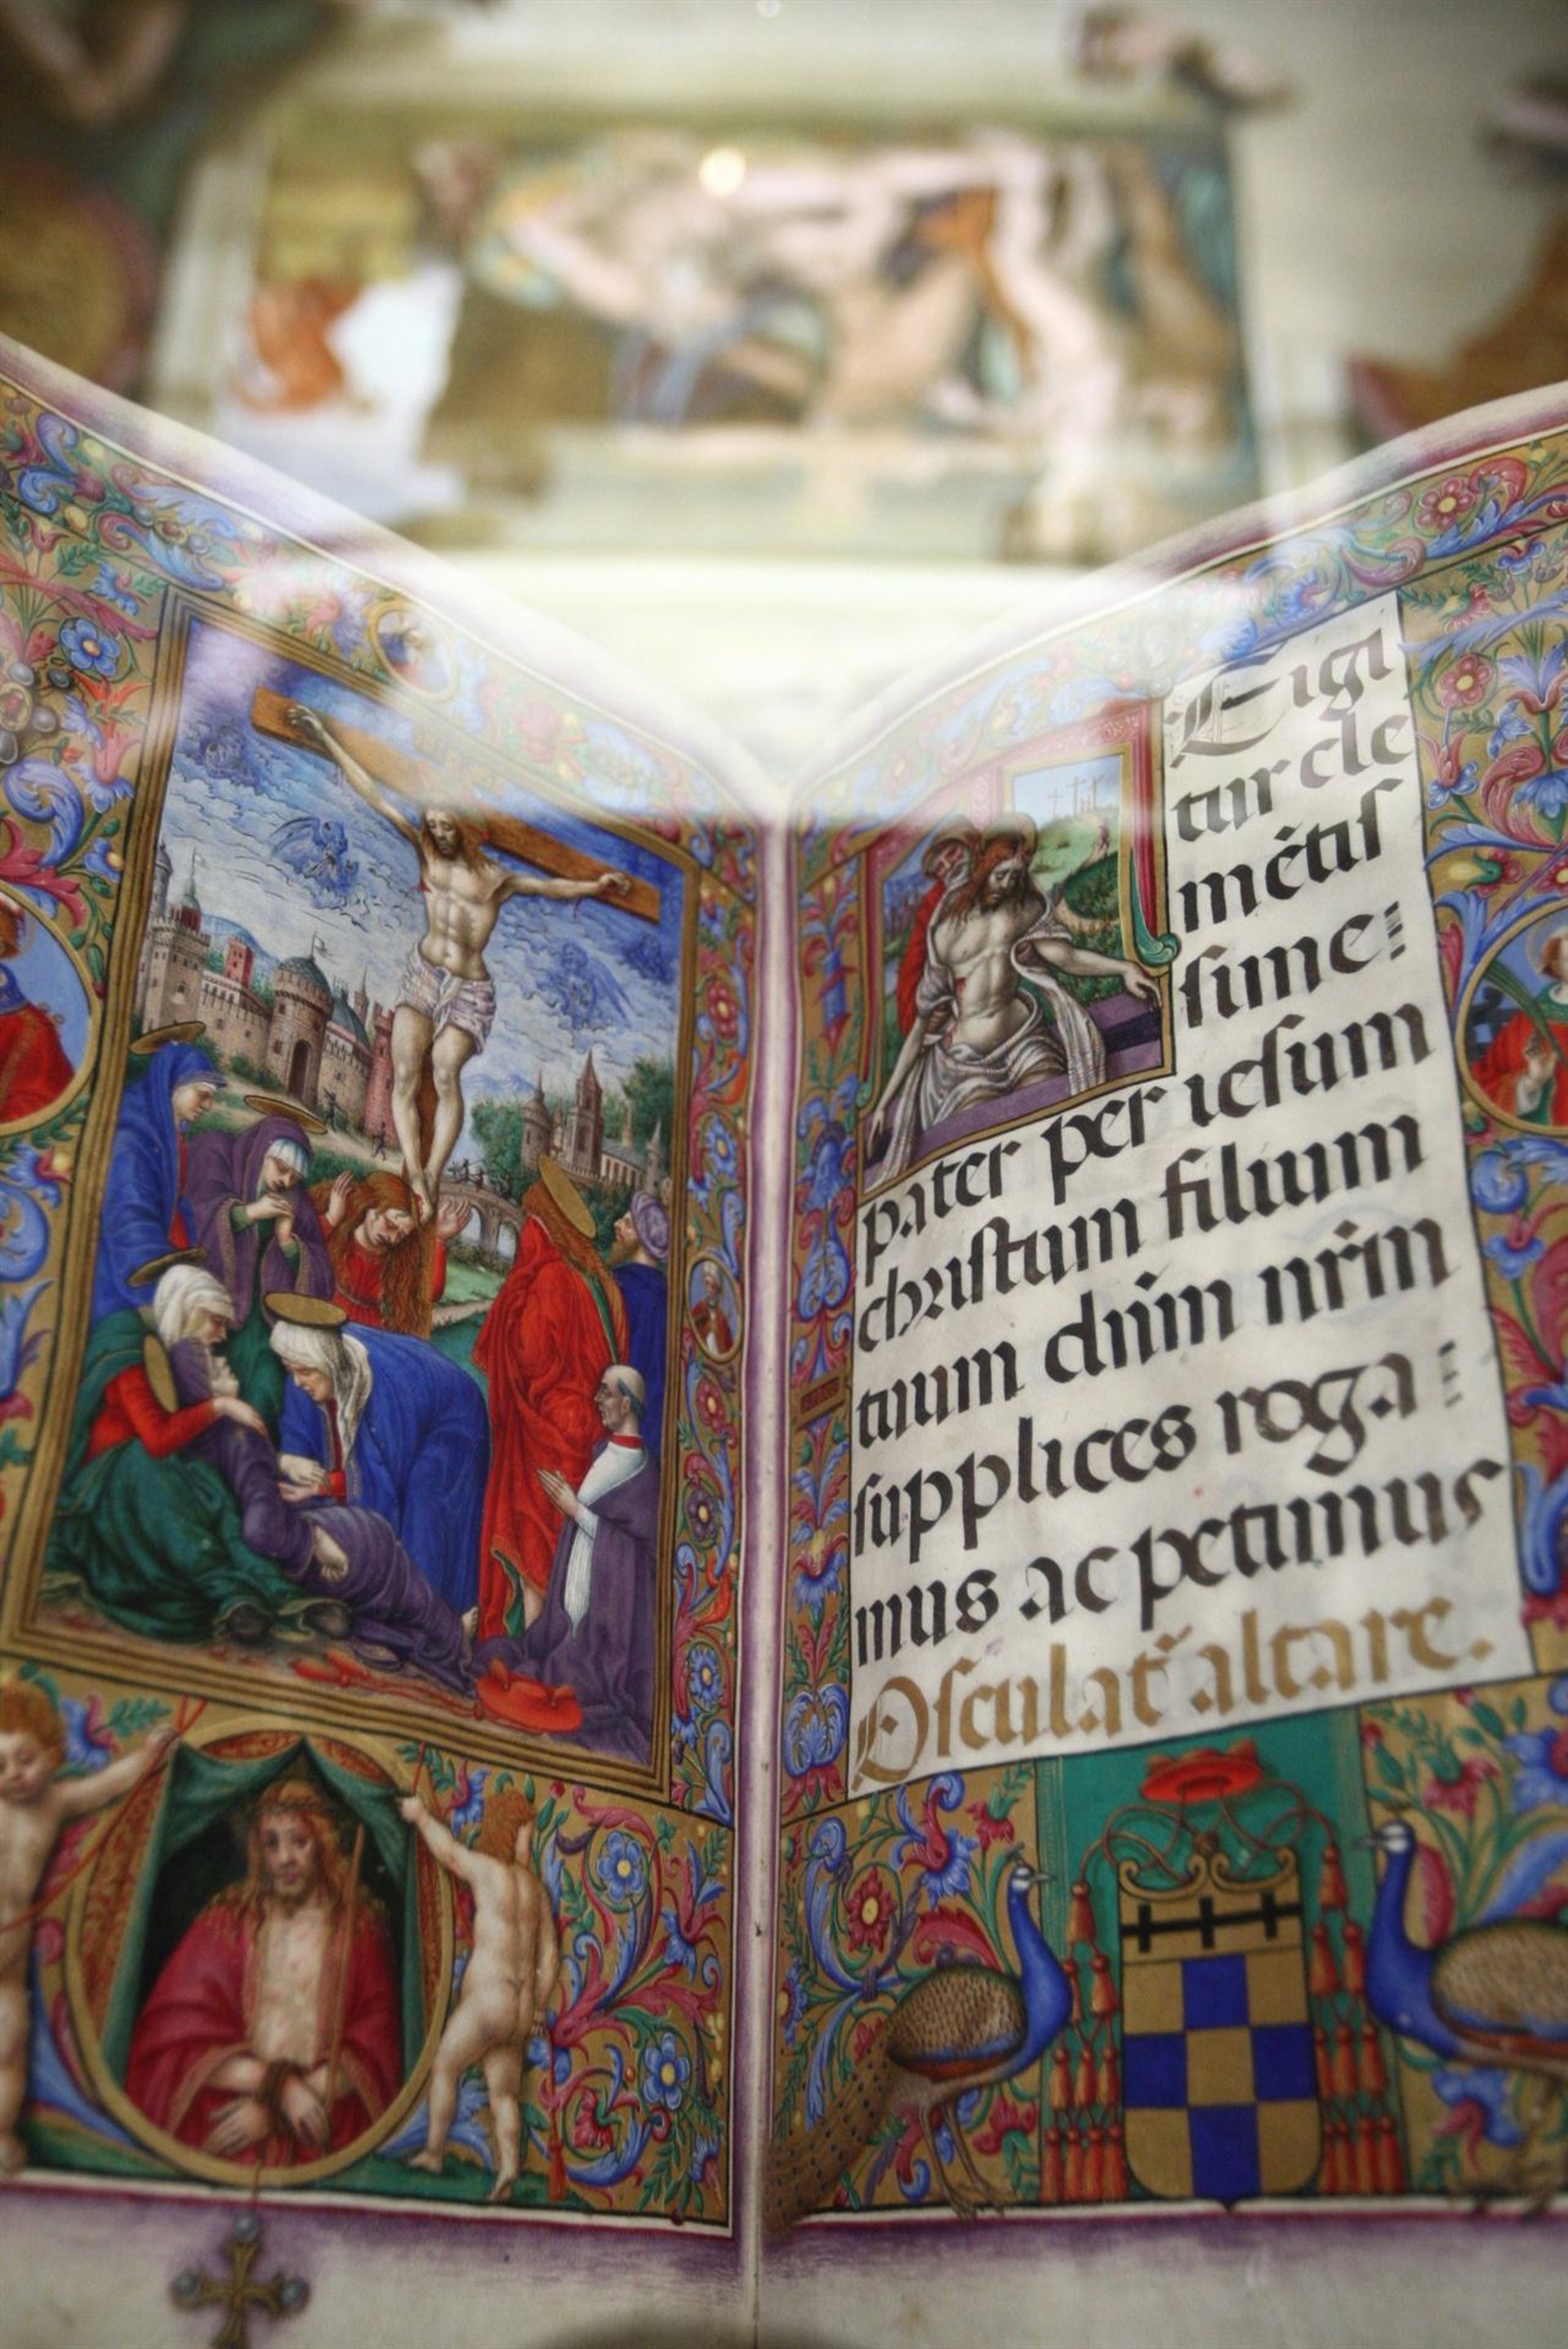 E igi
tur cle
mẽtiſ
ſime:
pater per ieſum
chriſtum filium
tuum dn̄m nr̄m
ſupplices roga:
mus ac petimus
Oſculat᷑ altare.